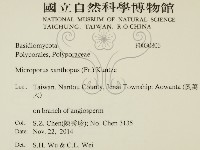 國立自然科學博物館
NATIONAL MUSEUM OF NATURAL SCIENCE
TAICHUNG, TAIWAN, R.O.CHINA
Basidiomycota
Polyporales, Polyporaceae
Microporus xanthopus (Fr.) Kuntze
Loc.: Taiwan, Nantou County, Renai Township, Aowanta
on branch of angiosperm
Col.: S.Z. Chen No. Chen 3135
Date: Nov. 22, 2014
Det.: S.H. Wu & C.L. Wei